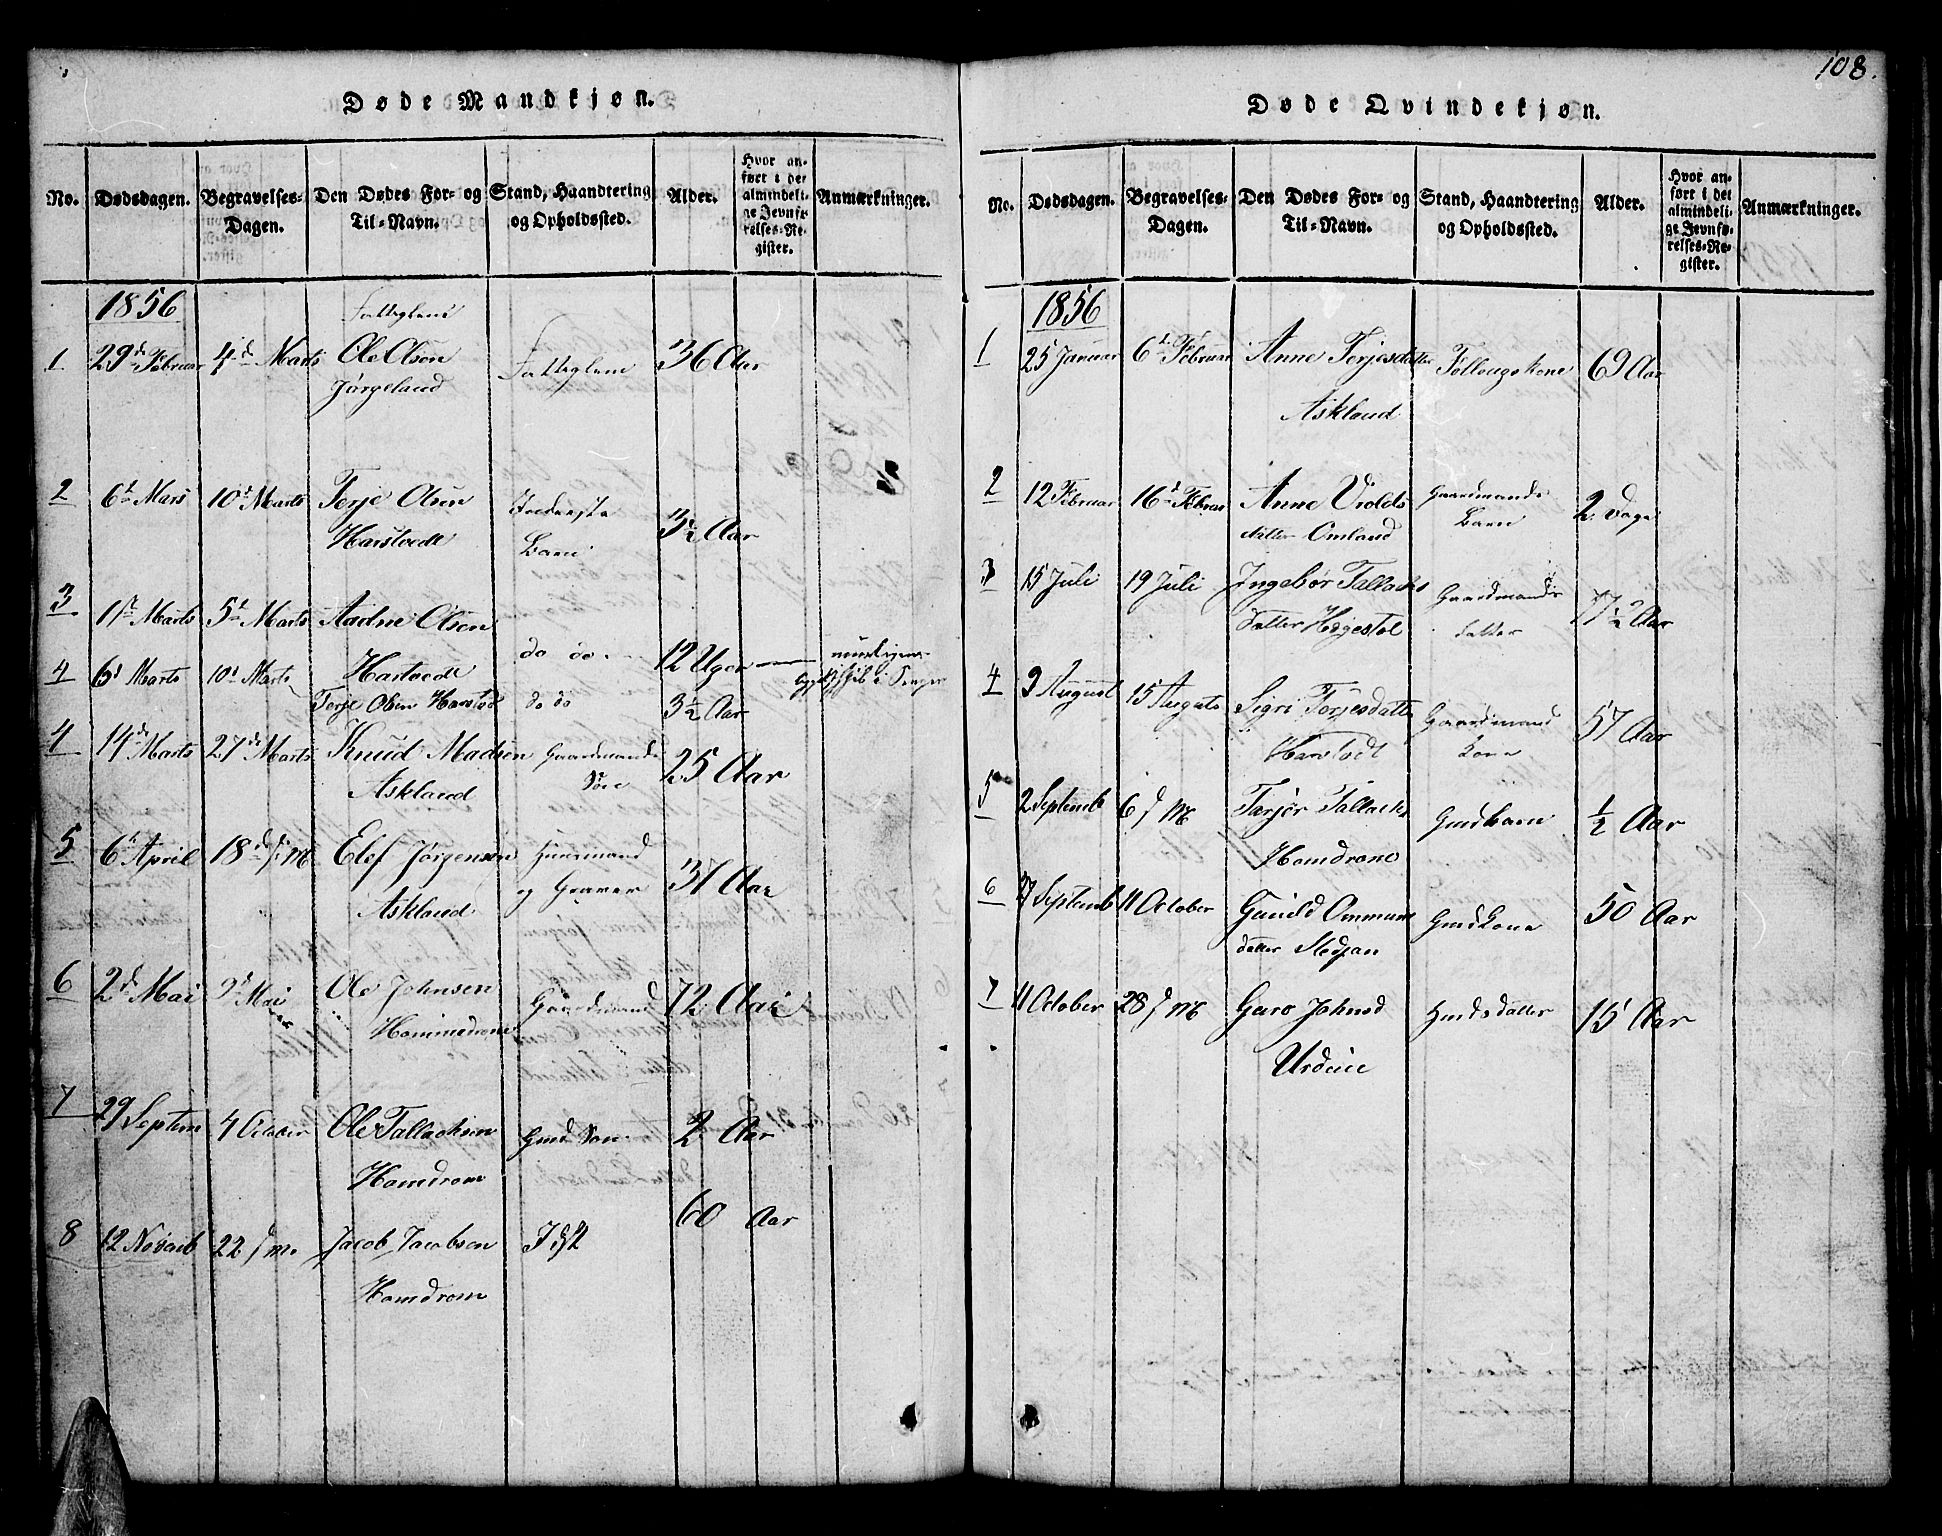 108.
Døde Mandkjøn.
No. Dødsdagen. Begravelses-Dagen. Den Dødes For- og Til-Navn. Stand, Haandtering og Opholdssted. Alder. Hvor anført i det almindelige Jevnførelses-Register. Anmærkninger.
1856
1 29de Februar 4de Marts Ole Olsen Fattiglem 36 Aar
Jørgeland
2 6te Mars 10de Marts Terje Olsen 3½ Aar
Harstvedt Barn
3 1ste Marts 5te Marts Aadne Olsen do do 12 Uger
Harstvedt
4 6te Marts 10de Marts Terje Olsen Harstvedt do do 3½ Aar
4 14de Marts 27de Marts Knud Madsen Gaardmands 25 Aar
Askland Søn
5 6te April 18de d. M. Elef Jørgensen Huusmand 37 Aar
Askland og Graver
6 2de Mai 9de Mai Ole Johnsen Gaardmand 72 Aar
Hommedrom
7 29 Septem 4 October Ole Tallachsen Gmd Søn 2 Aar
Homdrom
8 12 Novemb 22 d. M. Jacob Jacobsen 60 Aar
Homdrom
Døde Qvindekjøn.
No. Dødsdagen. Begravelses-Dagen. Den Dødes For- og Til-Navn. Stand, Haandtering og Opholdssted. Alder. Hvor anført i det almindelige Jevnførelses-Register. Anmærkninger.
1856
1 25 Januar 6te Februar Anne Terjesdatter Føllougskone 69 Aar
Askland
2 12 Februar 16de Februar Anne Violds Gaardmands 2 Dage
datter Omland Barn
3 15 Juli 19 Juli Ingebor Tallachs Gaardmands 17½ Aar
datter Høgestøl datter
4 9 August 15 August Sigri Terjesdatter Gaardmand 57 Aar
Harstvedt Kone
5 2 Septemb 6 d. M. Tarjer Tallachs Gmdbarn ½ Aar
Homdrom
6 27 Septemb 11 October Gunild Ommuns Gmdkone 50 Aar
datter Stedjan
7 11 October 28 d. M. Guro Johnsd Hmdsdatter 15 Aar
Urdalen